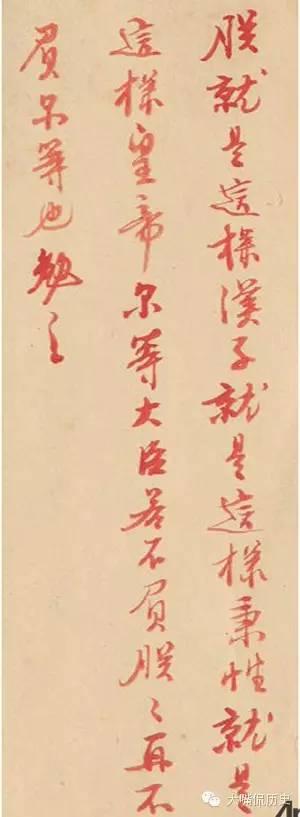 朕就是這樣漢子就是這樣秉性就是
這樣皇帝尔等大臣若不負朕〻再不
負尔等也勉之
大嘴侃历史